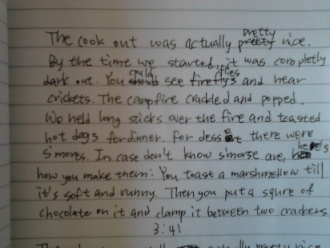 pretty
The cook out was actually pretty nice.
By the time we started, it was completly
dark out. You could see fireflies and hear
crickets. The campfire crackled and popped.
We held long sticks over the fire and toasted
hot dogs for dinner. for dessert there were
s'mores. In case don't know s'morse are, here's
how you make them: You toast a marshmellow till
it's soft and runny. Then you put a squre of
chocolate on it and clamp it between two crackers.
3:41